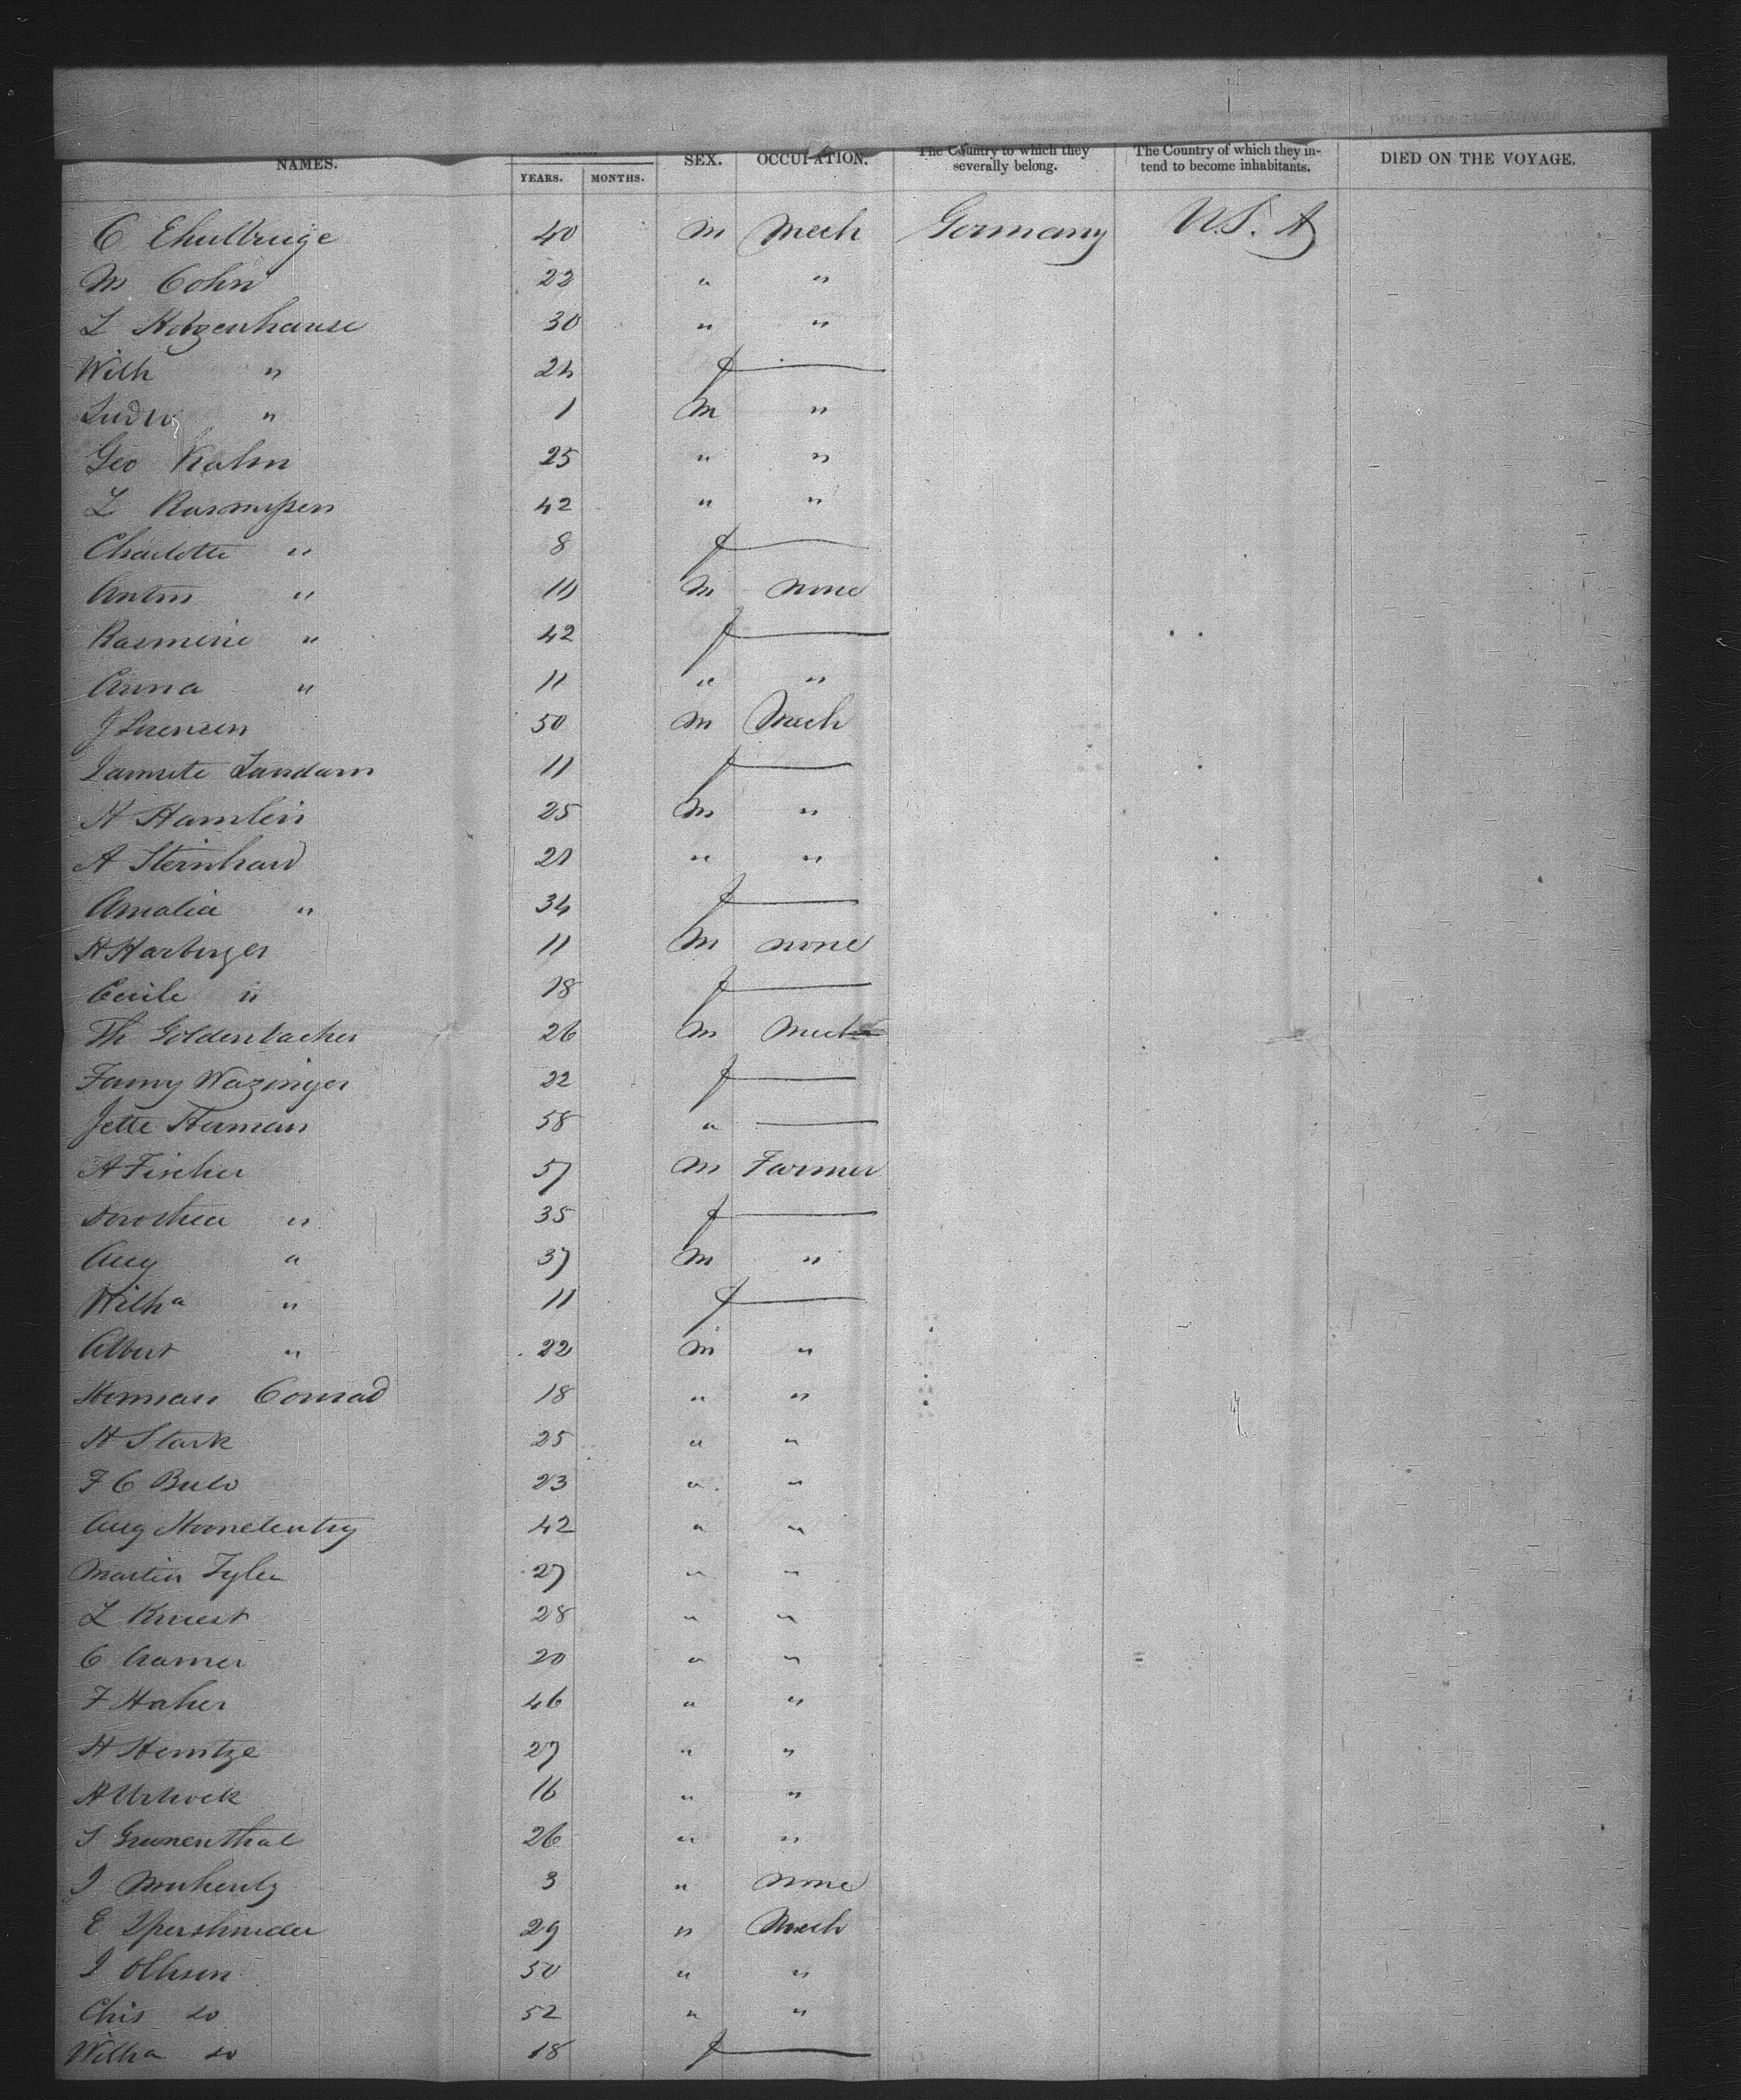 NAMES. YEARS. MONTHS. SEX. OCCUPATION. The Country to which they severally belong. The Country of which they intend to become inhabitants. DIED ON THE VOYAGE.
C 40 M Mech Germany U.S. A
M Cohn 22 " "
L 30 " "
Wilh " 24 f
Ludwig " 1 M "
Geo Kahn 25 " "
L Rasmussen 42 " "
Charlotte " 8 f
Anton " 10 M none
Rasmine " 42 f
Anna " 11 " "
J Lorenzen 50 M Mech
Landarn 11 f
H Hamlin 25 M "
A Steinhard 21 " "
Amalia " 34 f
H Harberger 11 M none
Cecile " 18 f
Th Goldenbacher 26 M Mech
Fanny Wazinger 22 f
Jette Herman 58 "
A Fischer 57 M Farmer
Dorothea " 35 f
Aug " 37 M "
Wilha " 11 f
Albert " 22 M "
Herman Conrad 18 " "
H Stark 25 " "
F C 23 " "
Aug 42 " "
Martin Tyler 27 " "
L 28 " "
C Cramer 20 " "
F Haher 46 " "
H Heintze 27 " "
A 16 " "
S Grunenthal 26 " "
J 3 " none
E 29 " Mech
J Ollsen 50 " "
Chis do 52 " "
Wilha do 18 f